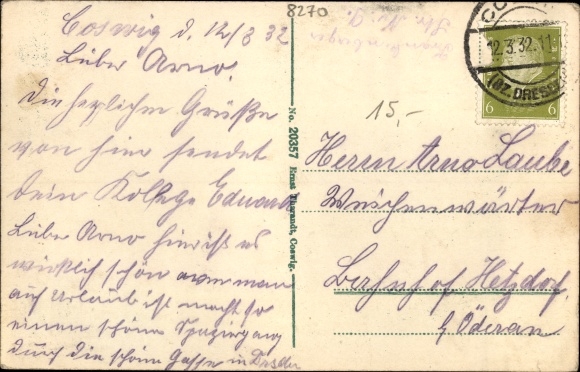 8270
Coswig d. 12/3 32
Lieber Arno.
Die herzlichen Grüße
von hier sendet
dein Kollege Eduard
Lieber Arno hier ist es
wirklich schön wenn man
auf Urlaub ist macht so
einen schönen Spaziergang
durch die schöne in
No. 20357 Ernst Coswig.
12.3.32.11
(BZ. DRESD
6 6
15,-
Herrn Arno Laube
Weichenwärter
Bahnhof Hetzdorf
b/ Öderan